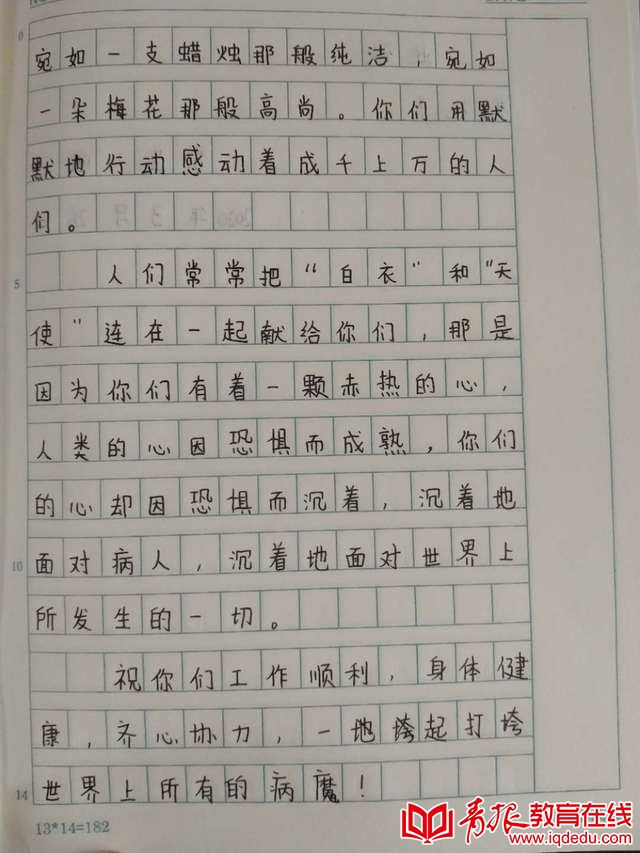 宛如一支蜡烛那般纯洁，宛如
一朵梅花那般高尚。你们用默
默地行动感动着成千上万的人
们。
5
人们常常把“白衣”和“天
使”连在一起献给你们，那是
因为你们有着一颗赤热的心，
人类的心因恐惧而成熟，你们
的心却因恐惧而沉着，沉着地
10
面对病人，沉着地面对世界上
所发生的一切。
祝你们工作顺利，身体健
康，齐心协力，一地垮起打垮
14
世界上所有的病魔！
13*14=182
青报教育在线
www.iqdedu.com